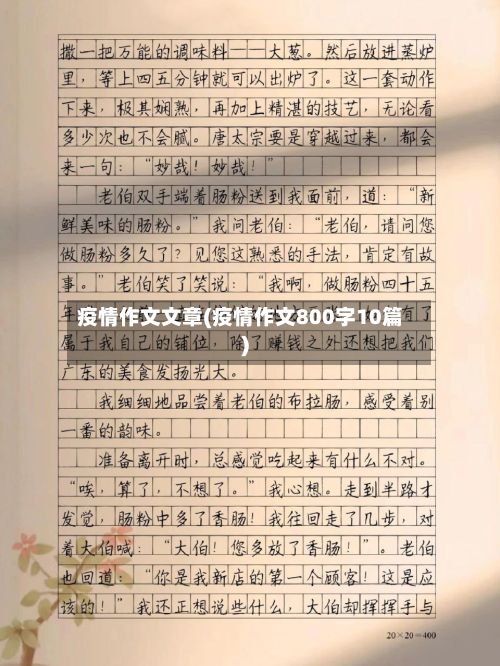 撒一把万能的调味料——大葱。然后放进蒸炉
里，等上四五分钟就可以出炉了。这一套动作
下来，极其娴熟，再加上精湛的技艺，无论看
多少次也不会腻。唐太宗要是穿越过来，都会
来一句：“妙哉！妙哉！”
老伯双手端着肠粉送到我面前，道：“新
鲜美味的肠粉。”我问老伯：“老伯，请问您
做肠粉多久了？见您这熟悉的手法，肯定有故
事。”老伯笑了笑说：“我啊，做肠粉四十五
年
有了
疫情作文文章(疫情作文800字10篇
)
属于我自己的铺位，除了赚钱之外还想把我们
广东的美食发扬光大。
我细细地品尝着老伯的布拉肠，感受着别
一番的韵味。
准备离开时，总感觉吃起来有什么不对。
“唉，算了，不想了。”我心想。走到半路才
发觉，肠粉中多了香肠！我往回走了几步，对
着大伯喊：“大伯！您多放了香肠！”。老伯
也回道：“你是我新店的第一个顾客！这是应
该的！”我还正想说些什么，大伯却挥挥手与
20×20=400